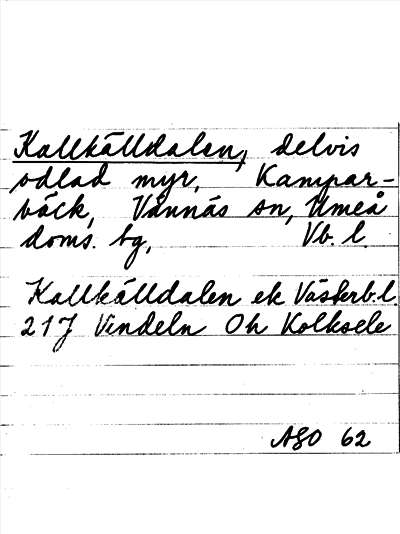 Kallkälldalen, delvis
odlad myr, Kampar-
bäck, Vännäs sn, Umeå
doms. bg, Vb. l.
Kallkälldalen ek Västerb.l.
21J Vindeln Oh Kolksele
ASO 62